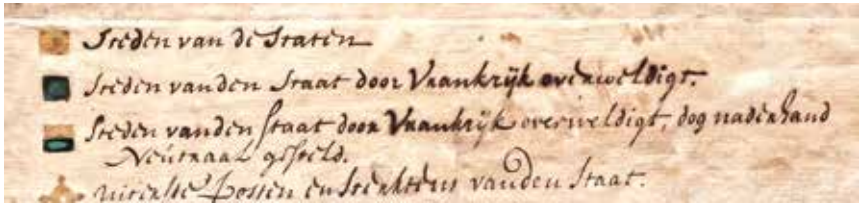 Steden van de Staten
Steden vanden Staat door Vrankrijk overweldigt.
Steden vanden staat door Vrankrijk overweldigt, dog naderhand
Neutraal gesteld.
uiterste Posten en Sterktens vanden Staat.